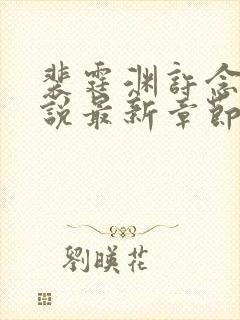 裴霆渊許念
說最新章節
劉暎花